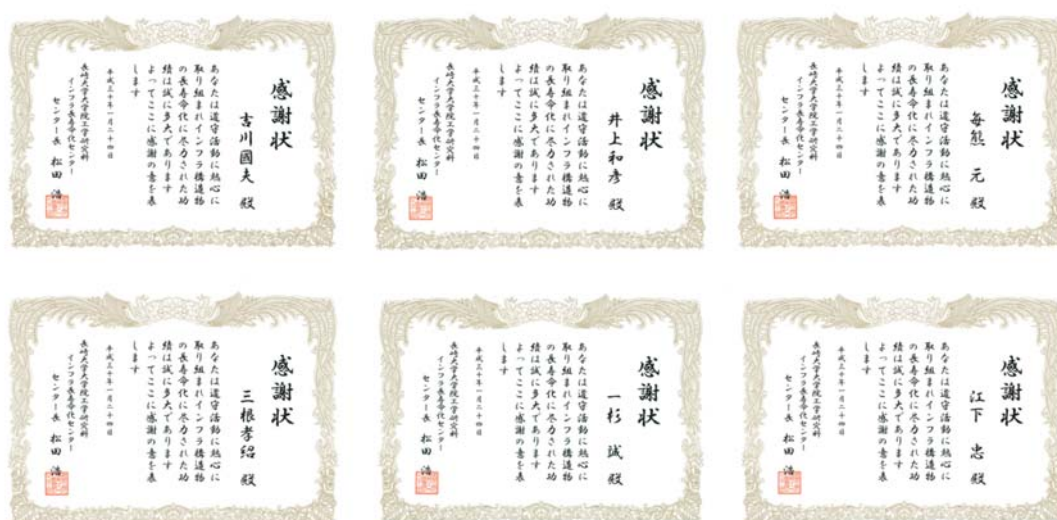 感謝状
吉川國夫 殿
あなたは道守活動に熱心に
取り組まれインフラ構造物
の長寿命化に尽力された功
績は誠に多大であります
よってここに感謝の意を表
します
平成三十年一月二十四日
長崎大学大学院工学研究科
インフラ長寿命化センター
センター長 松田 浩
感謝状
井上和彦 殿
あなたは道守活動に熱心に
取り組まれインフラ構造物
の長寿命化に尽力された功
績は誠に多大であります
よってここに感謝の意を表
します
平成三十年一月二十四日
長崎大学大学院工学研究科
インフラ長寿命化センター
センター長 松田 浩
感謝状
毎熊 元 殿
あなたは道守活動に熱心に
取り組まれインフラ構造物
の長寿命化に尽力された功
績は誠に多大であります
よってここに感謝の意を表
します
平成三十年一月二十四日
長崎大学大学院工学研究科
インフラ長寿命化センター
センター長 松田 浩
感謝状
三根孝紹 殿
あなたは道守活動に熱心に
取り組まれインフラ構造物
の長寿命化に尽力された功
績は誠に多大であります
よってここに感謝の意を表
します
平成三十年一月二十四日
長崎大学大学院工学研究科
インフラ長寿命化センター
センター長 松田 浩
感謝状
一杉 誠 殿
あなたは道守活動に熱心に
取り組まれインフラ構造物
の長寿命化に尽力された功
績は誠に多大であります
よってここに感謝の意を表
します
平成三十年一月二十四日
長崎大学大学院工学研究科
インフラ長寿命化センター
センター長 松田 浩
感謝状
江下 忠 殿
あなたは道守活動に熱心に
取り組まれインフラ構造物
の長寿命化に尽力された功
績は誠に多大であります
よってここに感謝の意を表
します
平成三十年一月二十四日
長崎大学大学院工学研究科
インフラ長寿命化センター
センター長 松田 浩